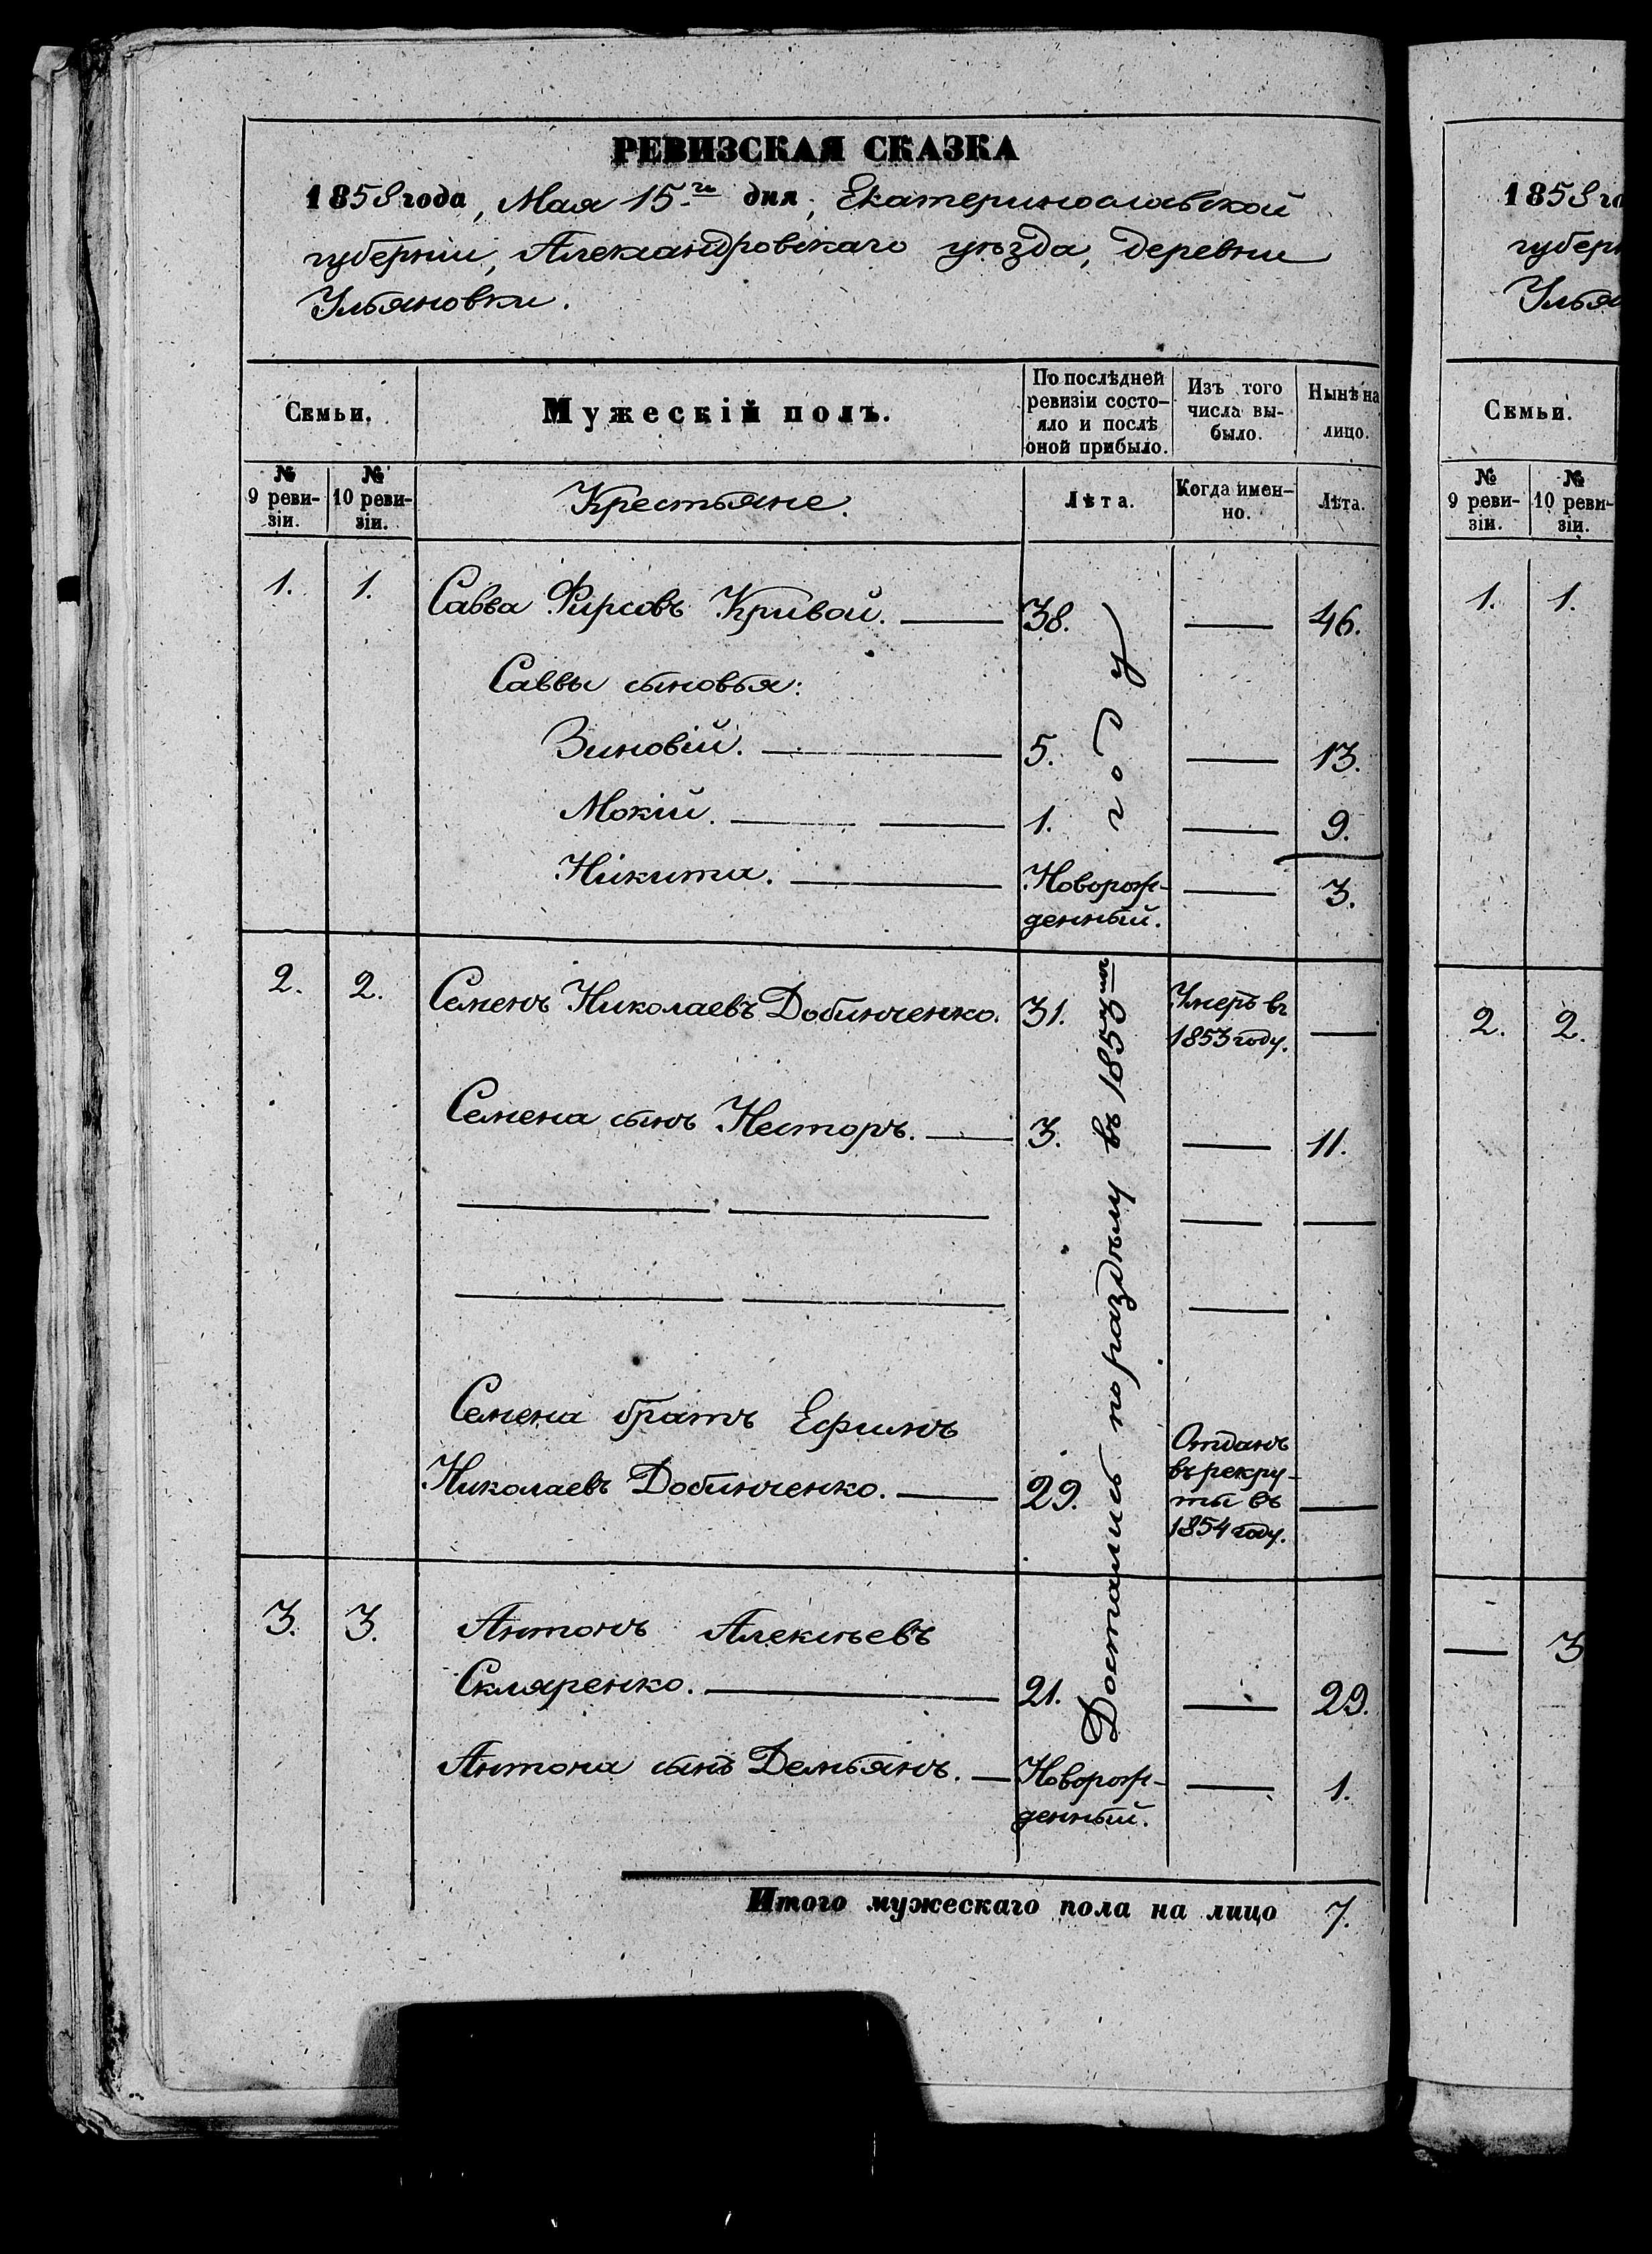 РЕВИЗСКАЯ СКАЗКА
1858 года, Мая 15го дня, Екатеринославской
губернии, Александровскаго уѣзда, деревни
Ульяновки.
Семьи.
Мужескій полъ.
По послѣдней
ревизіи состо-
яло и послѣ
оной прибыло.
Изъ того
числа вы-
было.
Нынѣ на
лицо.
№
9 реви-
зіи.
№
10 реви-
зіи.
Крестьяне.
Лѣта.
Когда имен-
но.
Лѣта.
1. 1. Савва Фирсовъ Кривой. 38. — 46.
Саввы сыновья:
Зиновій. 5. — 13.
Мокій. 1. — 9.
Никита. Новорож- — 3.
денный.
2. 2. Семенъ Николаевъ Добинченко. 31. Умеръ въ —
1853 году.
Семена сынъ Несторъ. 3. — 11.
Семена братъ Ефимъ
Николаевъ Добинченко. 29. Отданъ —
въ рекру-
ты въ
1854 году.
3. 3. Антонъ Алексѣевъ
Скляренко. 21. — 29.
Антона сынъ Демьянъ. Новорож- — 1.
денный.
Достались по раздѣлу въ 1853мъ году
Итого мужескаго пола на лицо 7.
1858 го
губерн
Улья
Семьи.
№
9 реви-
зіи.
№
10 реви-
зіи.
1. 1.
2. 2.
— 3